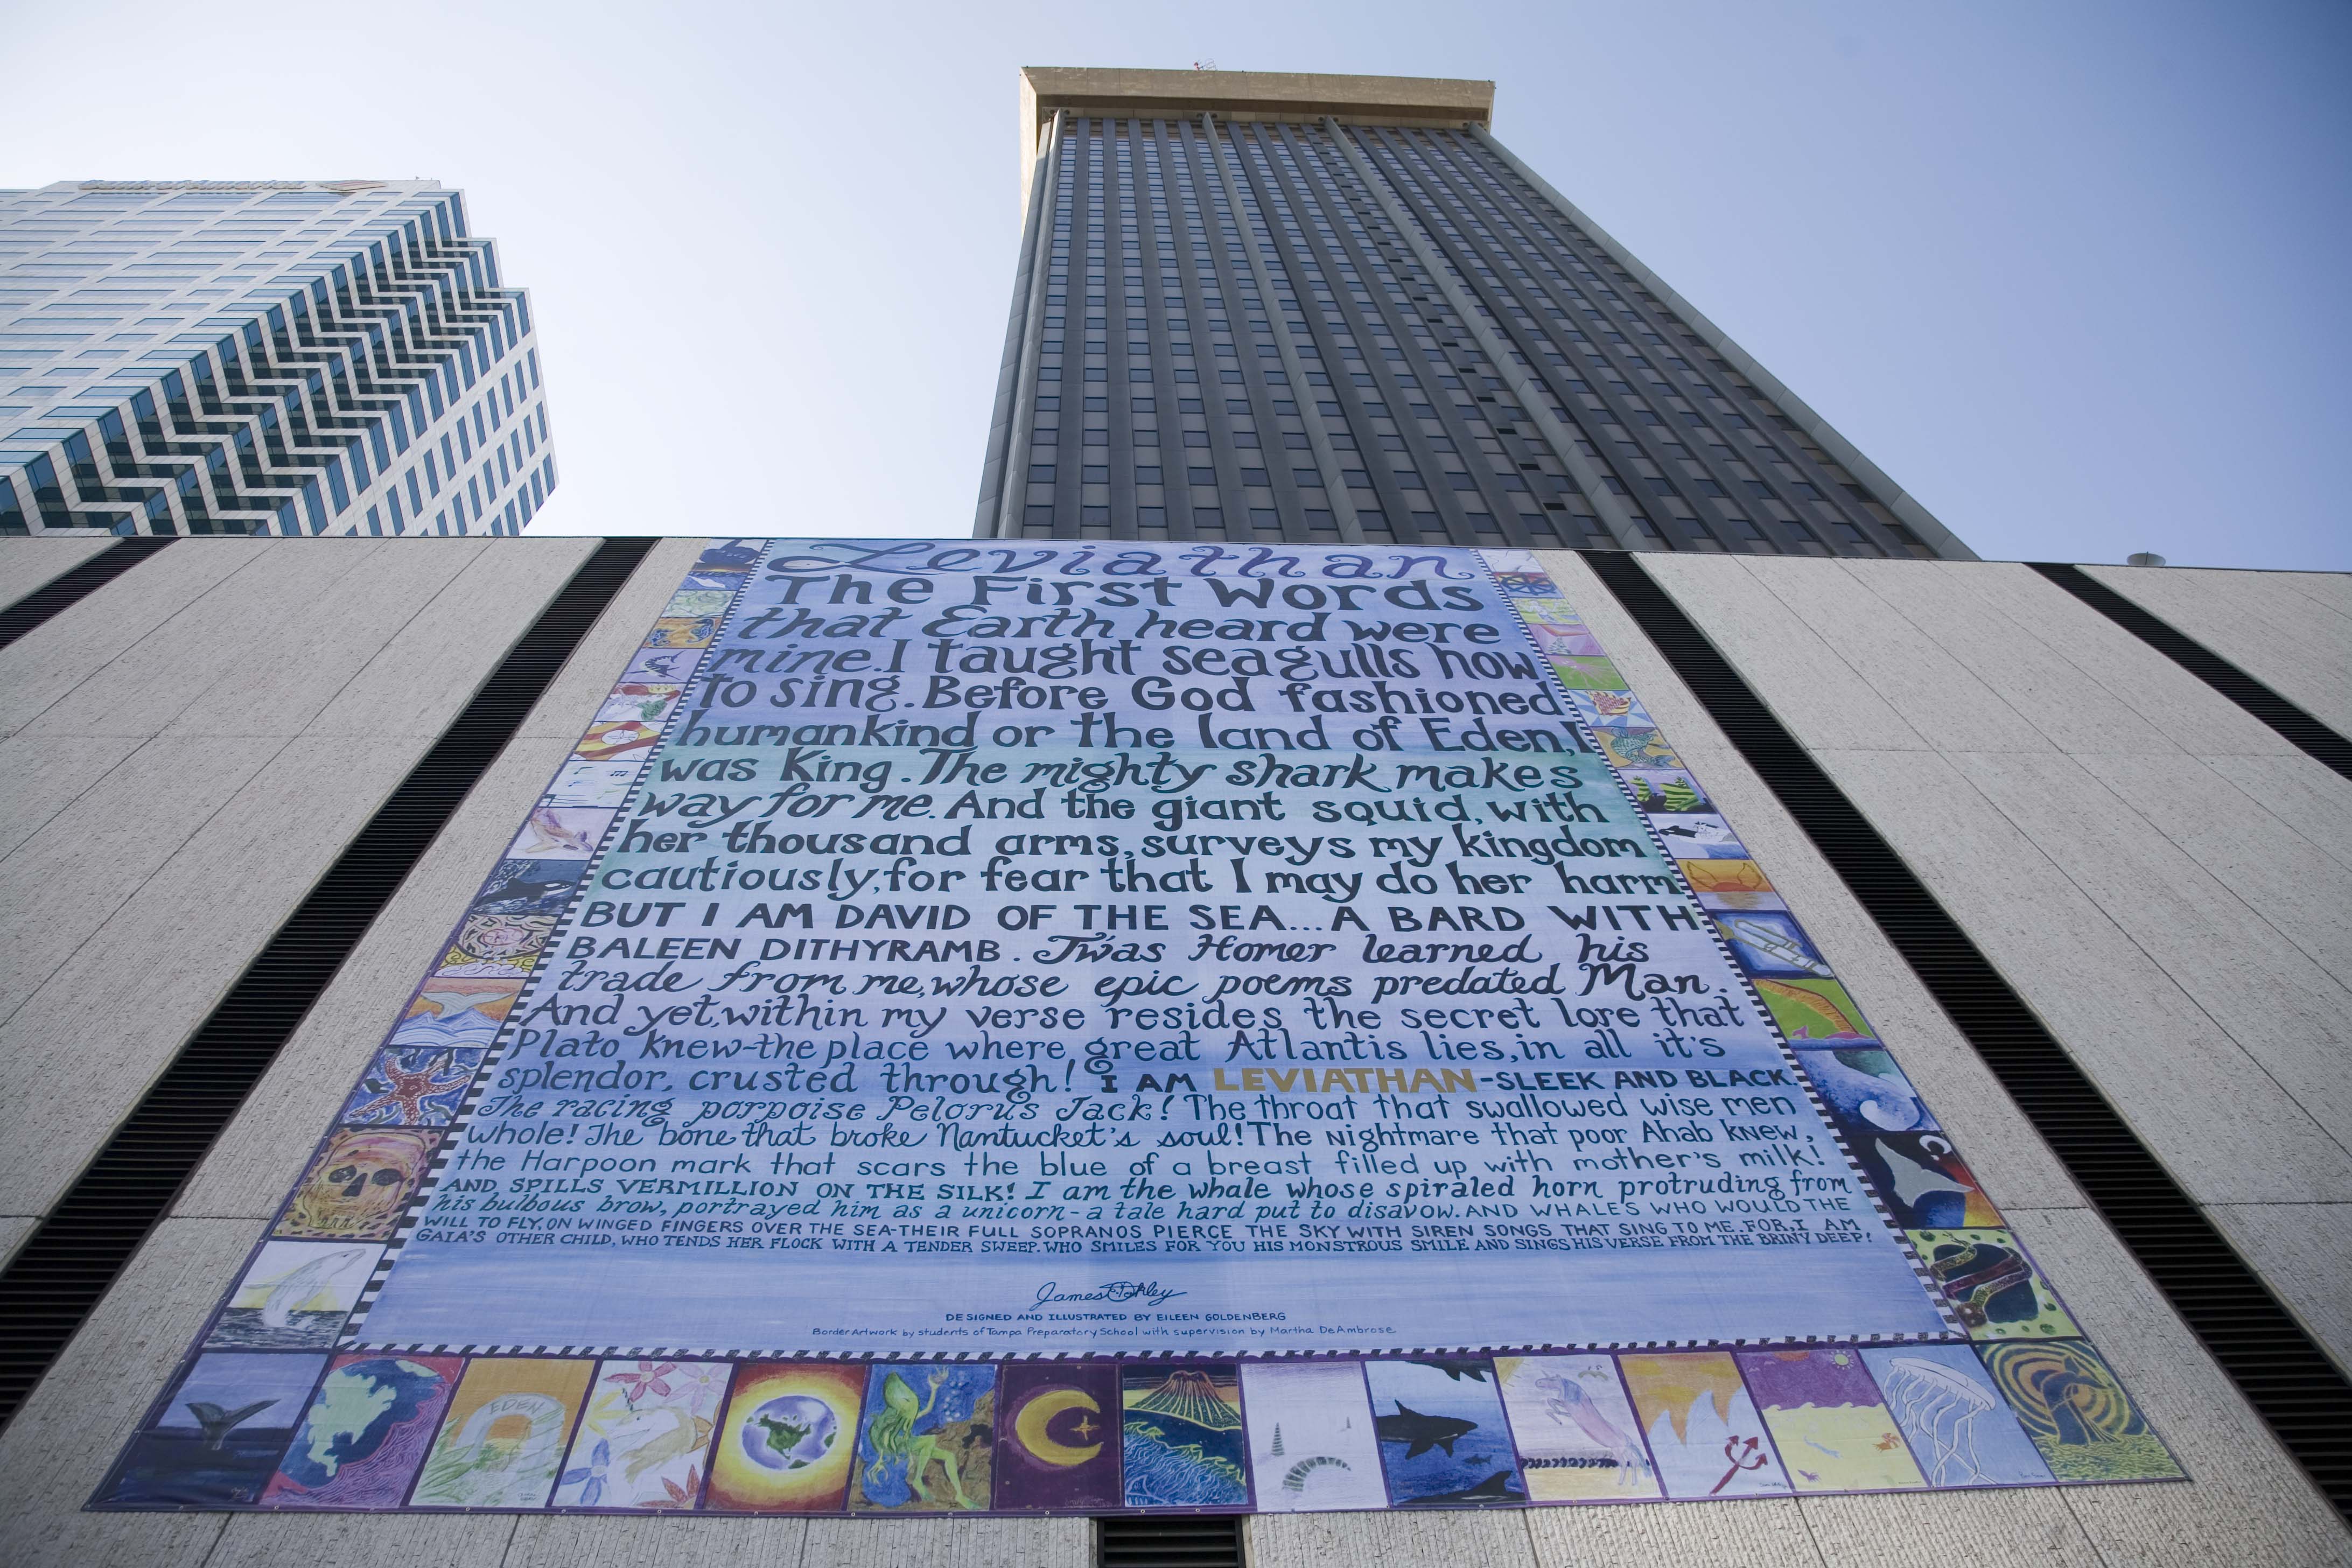 Bank of America
Leviathan
The First Words
that Earth heard were
mine. I taught seagulls how
to sing. Before God fashioned
humankind or the land of Eden, I
was King. The mighty shark makes
way for me. And the giant squid, with
her thousand arms, surveys my kingdom
cautiously, for fear that I may do her harm
BUT I AM DAVID OF THE SEA... A BARD WITH
BALEEN DITHYRAMB. Twas Homer learned his
trade from me, whose epic poems predated Man.
And yet, within my verse resides the secret lore that
Plato knew-the place where great Atlantis lies, in all it's
splendor, crusted through! I AM LEVIATHAN-SLEEK AND BLACK.
The racing porpoise Pelorus Jack! The throat that swallowed wise men
whole! The bone that broke Nantucket's soul! The Nightmare that poor Ahab knew,
the Harpoon mark that scars the blue of a breast filled up with mother's milk!
AND SPILLS VERMILLION ON THE SILK! I am the whale whose spiraled horn protruding from
his bulbous brow, portrayed him as a unicorn-a tale hard put to disavow. AND WHALE'S WHO WOULD THE
WILL TO FLY, ON WINGED FINGERS OVER THE SEA-THEIR FULL SOPRANOS PIERCE THE SKY WITH SIREN SONGS THAT SING TO ME. FOR, I AM
GAIA'S OTHER CHILD, WHO TENDS HER FLOCK WITH A TENDER SWEEP. WHO SMILES FOR YOU HIS MONSTROUS SMILE AND SINGS HIS VERSE FROM THE BRINY DEEP!
James
DESIGNED AND ILLUSTRATED BY EILEEN GOLDENBERG
Border Artwork by students of Tampa Preparatory School with supervision by Martha DeAmbrose
EDEN